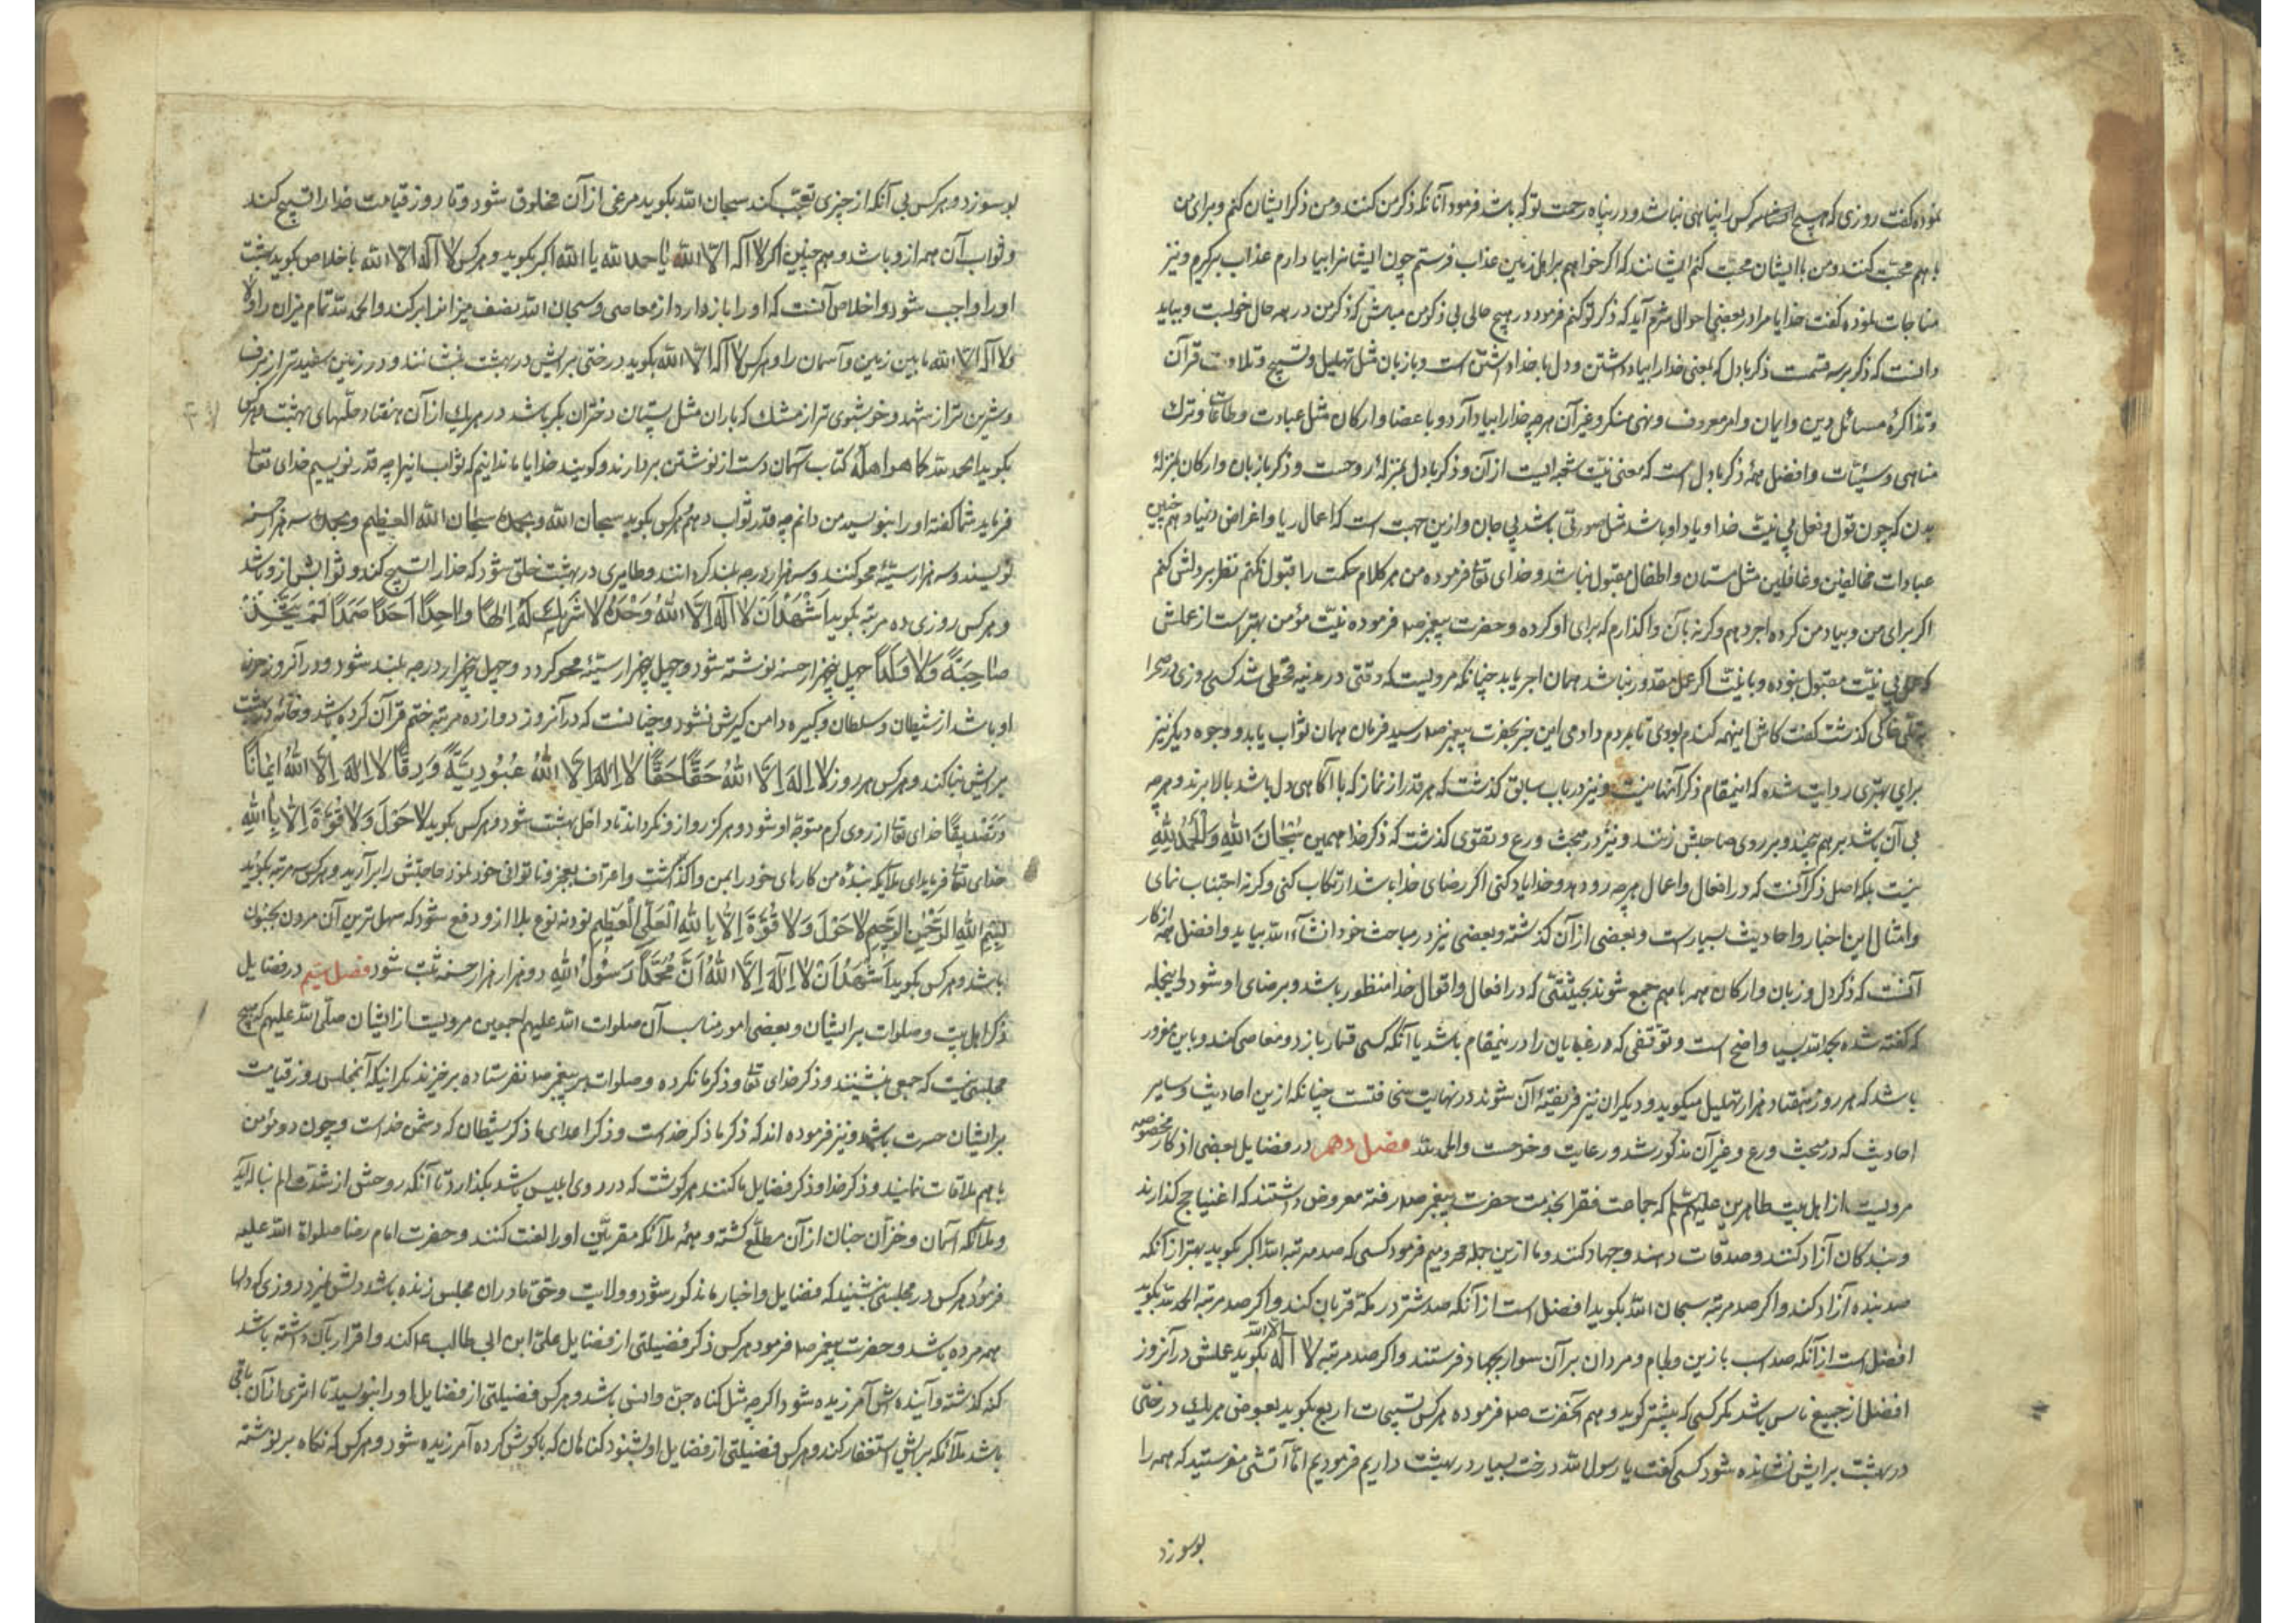 نموده گفت روزی که هیچ کس را پناهی نباشد و در پناه رحمت تو که باشد فرمود آنانکه ذکر من کنند و من ذکر ایشان کنم و برای من
با هم محبت کنند و من با ایشان محبت کنم ایشانند که اگر خواهم بر اهل زمین عذاب فرستم چون ایشانرا بیاد آرم عذاب برگیرم و نیز
مناجات نموده گفت خدایا مرا در بعضی احوال شرم آید که ذکر تو کنم فرمود در هیچ حالی بی ذکر من مباش که ذکر من در همه حال خوبست و بباید
دانست که ذکر بر سه قسمت ذکر با دل که یعنی خدا را بیاد داشتن و دل با خدا داشتن است و با زبان مثل تهلیل و تسبیح و تلاوت قرآن
و تذاکرهٔ مسائل دین و ایمان و امر معروف و نهی منکر و غیر آن هر چه خدا را بیاد آرد و با عضا و ارکان مثل عبادت و طاعات و ترک
مناهی و سیّئات و افضل همهٔ ذکر با دل است که معنی نیّت شعبه ایست از آن و ذکر با دل بمنزلهٔ روحست و ذکر با زبان و ارکان بمنزلهٔ
بدن که چون قول و فعل بی نیّت خدا و یاد او باشد مثل صورتی باشد بی جان و ازین جهت است که اعمال ریا و اغراض دنیا و هم چنین
عبادات مخالفین و غافلین مثل مستان و اطفال مقبول نباشد و خدای تعا فرموده من هر کلام حکمت را قبول نکنم نظر بر دلش کنم
اگر برای من و بیاد من کرده اجر دهم و گرنه بآن واگذارم که برای او کرده و حضرت پیغمبر صلا فرموده نیّت مؤمن بهتر است از عملش
که عمل بی نیّت مقبول نبوده و با نیّت اگر عمل مقدور نباشد همان اجر یابد چنانکه مرویست که وقتی در مدینه قحطی شد کسی روزی در صحرا
بر تلّی خاکی گذشت گفت کاش اینهمه گندم بودی تا بمردم دادمی این خبر بحضرت پیغمبر صلا رسید فرمان همان ثواب یابد و وجوه دیگر نیز
برای بهتری روایت شده که اینمقام ذکر آنها نیست و نیز در باب سابق گذشت که هر قدر از نماز که با آگاهی دل باشد بالا برند و هر چه
بی آن باشد بر هم پیچند و بر روی صاحبش زنند و نیز در مبحث ورع و تقوی گذشت که ذکر خدا همین سُبْحَانَ اللهِ وَالْحَمْدُ لِلّهِ
نیست بلکه اصل ذکر آنست که در افعال و اعمال هر چه رو دهد و خدا یاد کنی اگر رضای خدا باشد ارتکاب کنی و گرنه اجتناب نمای
و امثال این اخبار و احادیث بسیار است و بعضی از آن گذشته و بعضی نیز در مباحث خود انشآء الله بیاید و افضل همهٔ اذکار
آنست که ذکر دل و زبان و ارکان همه با هم جمع شوند بحیثیتی که در افعال و اقوال خدا منظور باشد و برضای او شود و اینجمله
که گفته شده بحمد الله بسیا واضح است و توقفی که در غیر یان را در ینمقام باشد یا آنکه کسی قمار بازد و معاصی کند و باین مغرور
باشد که هر روز هفتاد هزار تهلیل میگوید و دیگران نیز فریفتهٔ آن شوند در نهایت سخافتست چنانکه ازین احادیث و سایر
احادیث که در مبحث ورع و غیر آن مذکور شد و رعایت و خوست و الحمد لله فصل دهم در فضایل بعضی اذکار مخصوصه
مرویست از اهل بیت طاهرین علیهم السلم که جماعت فقرا بخدمت حضرت پیغمبر صلا رفته معروض داشتند که اغنیا حج گذارند
و بندگان آزاد کنند و صدقات دهند و جهاد کنند و ما ازین جمله محرومیم فرمود کسی که صد مرتبه الله اکبر بگوید بهتر از آنکه
صد بنده آزاد کند و اگر صد مرتبه سبحان الله بگوید افضل است از آنکه صد شتر در مکّه قربان کند و اگر صد مرتبه الحمد لله بگوید
افضل است از آنکه صد اسب با زین و لجام و مردان بر آن سوار بجهاد فرستند و اگر صد مرتبه لا آله الا الله بگوید عملش در آنروز
افضل از جمیع ناس باشد مگر کسی که بیشتر گوید و هم آنحضرت صلا فرموده هر کس تسبیحات اربع بگوید بعوض هر یک درختی
در بهشت برایش نشانده شود کسی گفت یا رسول الله درخت بسیار در بهشت داریم فرمودیم امّا آتشی مفرستید که همه را
بسوزد
بسوزد و هر کس بی آنکه از چیزی تعجّب کند سبحان الله بگوید مرغی از آن مخلوق شود و تا روز قیامت خدا را تسبیح کند
و ثواب آن همه از و باشد و هم چنین اگر لا آله الا الله یا حمد لله یا الله اکبر بگوید و هر کس لا آله الا الله باخلاص بگوید بهشت
او را واجب شود و اخلاص آنست که او را باز دارد از معاصی و سبحان الله نصف میزانرا پر کند و الحمد لله تمام میزان را و لا
ولا آله الا الله ما بین زمین و آسمان را و هر کس لا آله الا الله بگوید درختی برایش در بهشت بنشانند و در زمین سفید تر از برف
و شیرین تر از شهد و خوشبوی تر از مشک که باران مثل پستان دختران بکر باشد در هر یک از آن هفتاد حلّهای بهشت و هر کس
بگوید الحمد لله کما هو اهله کتاب آسمان دست از نوشتن بردارند و گویند خدایا ما ندانیم که ثواب اینرا چه قدر نویسیم خدای تعا
فرماید شما گفته او را بنویسید من دانم چه قدر ثواب دهم و هر کس بگوید سبحان الله وبحمده سبحان الله العظیم وبحمده سه هزار حسنه
نویسند و سه هزار سیّئه محو کنند و سه هزار درجه بلند گردانند و طایری در بهشت خلق شود که خدا را تسبیح کند و ثوابش از و باشد
و هر کس روزی ده مرتبه بگوید اَشْهَدُ اَنْ لا آلهَ اِلَّا اللهُ وَحْدَهُ لا شَرِیکَ لَهُ اِلهًا واحِدًا اَحَدًا صَمَدًا لَمْ یَتَّخِذْ
صاحِبَةً وَلا وَلَدًا چهل پنجهزار حسنه نوشته شود و چهل پنجهزار سیّئه محو گردد و چهل پنجهزار درجه بلند شود و در آنروز حرز
او باشد از شیطان و سلطان و کبیره دامن گیرش نشود و چنانست که در آنروز دوازده مرتبه ختم قرآن کرده باشد و خانهٔ در بهشت
برایش بنا کند و هر کس هر روز لا اِلهَ اِلَّا اللهُ حَقًّا حَقًّا لا اِلهَ اِلَّا اللهُ عُبُودِیَّةً وَرِقًّا لا اِلهَ اِلَّا اللهُ ایمَانًا
وَتَصْدِیقًا خدای تعا از روی کرم متوجّه او شود و هرگز رو از و نگرداند تا داخل بهشت شود و هر کس بگوید لا حَوْلَ وَلا قُوَّةَ اِلَّا بِاللهِ
خدای تعا فرماید ای ملایکه بندهٔ من کارهای خود را بمن واگذاشت و اعتراف بعجز و ناتوانی خود نمود حاجتش را بر آرید و هر کس سه مرتبه بگوید
بِسْمِ اللهِ الرَّحْمنِ الرَّحِیمِ لا حَوْلَ وَلا قُوَّةَ اِلَّا بِاللهِ الْعَلِیِّ الْعَظِیمِ نود نه نوع بلا از و دفع شود که سهل ترین آن مردن بجنون
باشد و هر کس بگوید اَشْهَدُ اَنْ لا اِلهَ اِلَّا اللهُ اَنَّ مُحَمَّدًا رَسُولُ اللهِ دو هزار هزار حسنه ثبت شود فصل سیم در فضایل
ذکر اهل بیت و صلوات بر ایشان و بعضی امور مناسب آن صلوات الله علیهم اجمعین مرویست از ایشان صلّی الله علیهم که هیچ
مجلسی نیست که جمعی بنشینند و ذکر خدای تعا و ذکر ما نکرده و صلوات بر پیغمبر صلا نفرستاده برخیزند مگر اینکه آنمجلس روز قیامت
بر ایشان حسرت باشد و نیز فرموده اند که ذکر ما ذکر خداست و ذکر اعدای ما ذکر شیطان که دشمن خداست و چون دو مؤمن
با هم ملاقات نمایند و ذکر خدا و ذکر فضایل ما کنند هر گوشت که در روی ابلیس باشد بگذارد تا آنکه روحش از شدت الم بناله آید
و ملائکه آسمان و خزّان جنان از آن مطّلع گشته و همهٔ ملائکه مقربیّن او را لعنت کنند و حضرت امام رضا صلواة الله علیه
فرمود هر کس در مجلسی بنشیند که فضایل و اخبار ما مذکور شود و ولایت و حق ما در ان مجلس زنده باشد دلش نمیرد روزی که دلها
همه مرده باشد و حضرت پیغمبر صلا فرمود هر کس ذکر فضیلتی از فضایل علیّ ابن ابی طالب ع کند و اقرار بآن داشته باشد
گنه گذشته و آینده اش آمرزیده شود اگر چه مثل گناه جنّ و انس باشد و هر کس فضیلتی از فضایل او را بنویسد تا اثری از آن باقی
باشد ملائکه برایش استغفار کند و هر کس فضیلتی از فضایل او بشنود گناهان که با گوش کرده آمرزیده شود و هر کس که نگاه بر نوشته